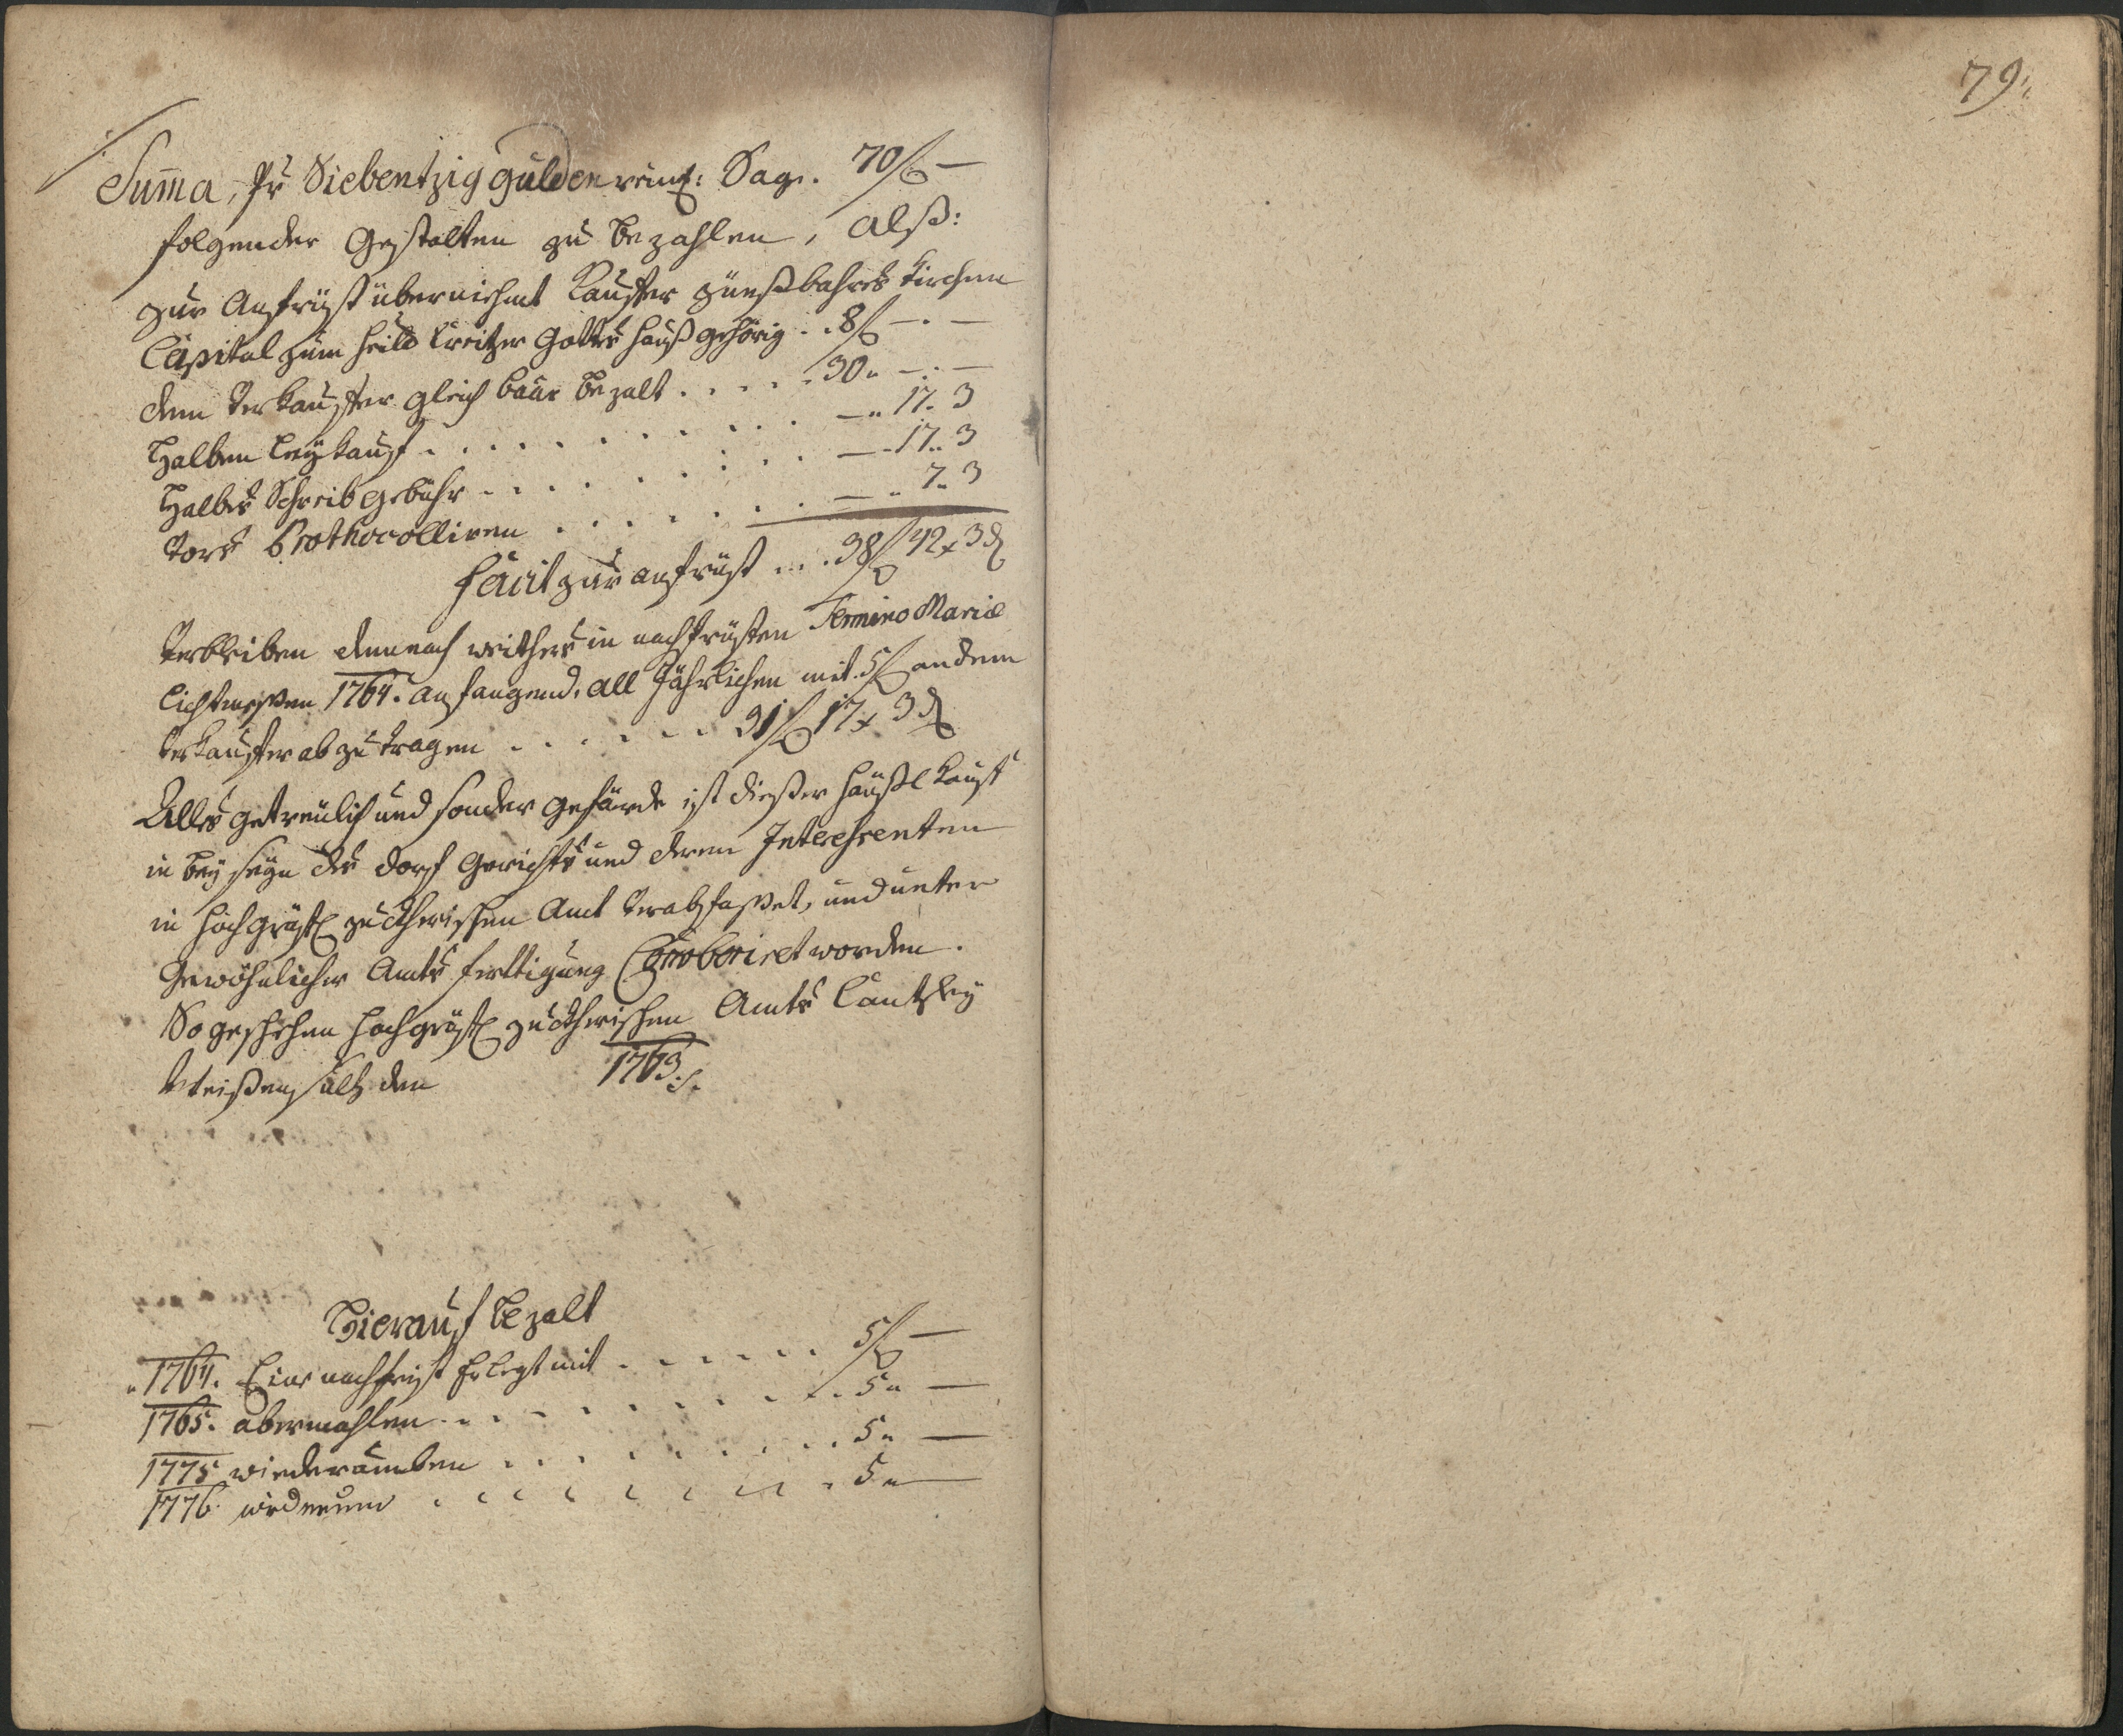 79.
Suma, pr Siebentzig gulden reinl: Sage. 70 f —
folgender Gestalten zu bezahlen, Alß:
zur Anfrist übernihmt Kauffer zünßbahres Kirchen
Capital zum heil Creitzer Gottes hauß gehörig . . 8 f — . —
dem Verkauffer gleich baar bezalt . . . . . 30 „ — . —
Halben Leykauf . . . . . . . . . . . — „ 17. 3
Halbe Schreibgebühr . . . . . . . . . — . 17. 3
Vors Prothocolliren . . . . . . . — „ 7. 3
Facit zur anfrist . . . 38 f 42 x 3 d
Verbleiben demnach weithers in nachfristen Termino Mariæ
Lichtmessen 1764. anfangend, all Jährlichen mit 5 f an dem
Verkauffer abzutragen . . . . . . . 31 f 17 x 3 d
Alles getreulich und sonder gefärde ist dießer Häußl Kauff
in beyseyn der dorf Gerichts und deren Interehsenten
in hochgräfl Amt verabfasset, und unter
Gewöhnlicher Amts fertigung Corroboriret worden.
So geschehen hochgräfl Amts Cantzley
Weißensultz den 1763.
Hierauf bezalt
1764. Eine nachfrist Erlegt mit . . . . . . 5 f —
1765. abermahlen . . . . . . . . . . . 5 „ —
1775 wiederumben . . . . . . . . . . 5 „ —
1776. widerum . . . . . . . . . . 5 „ —